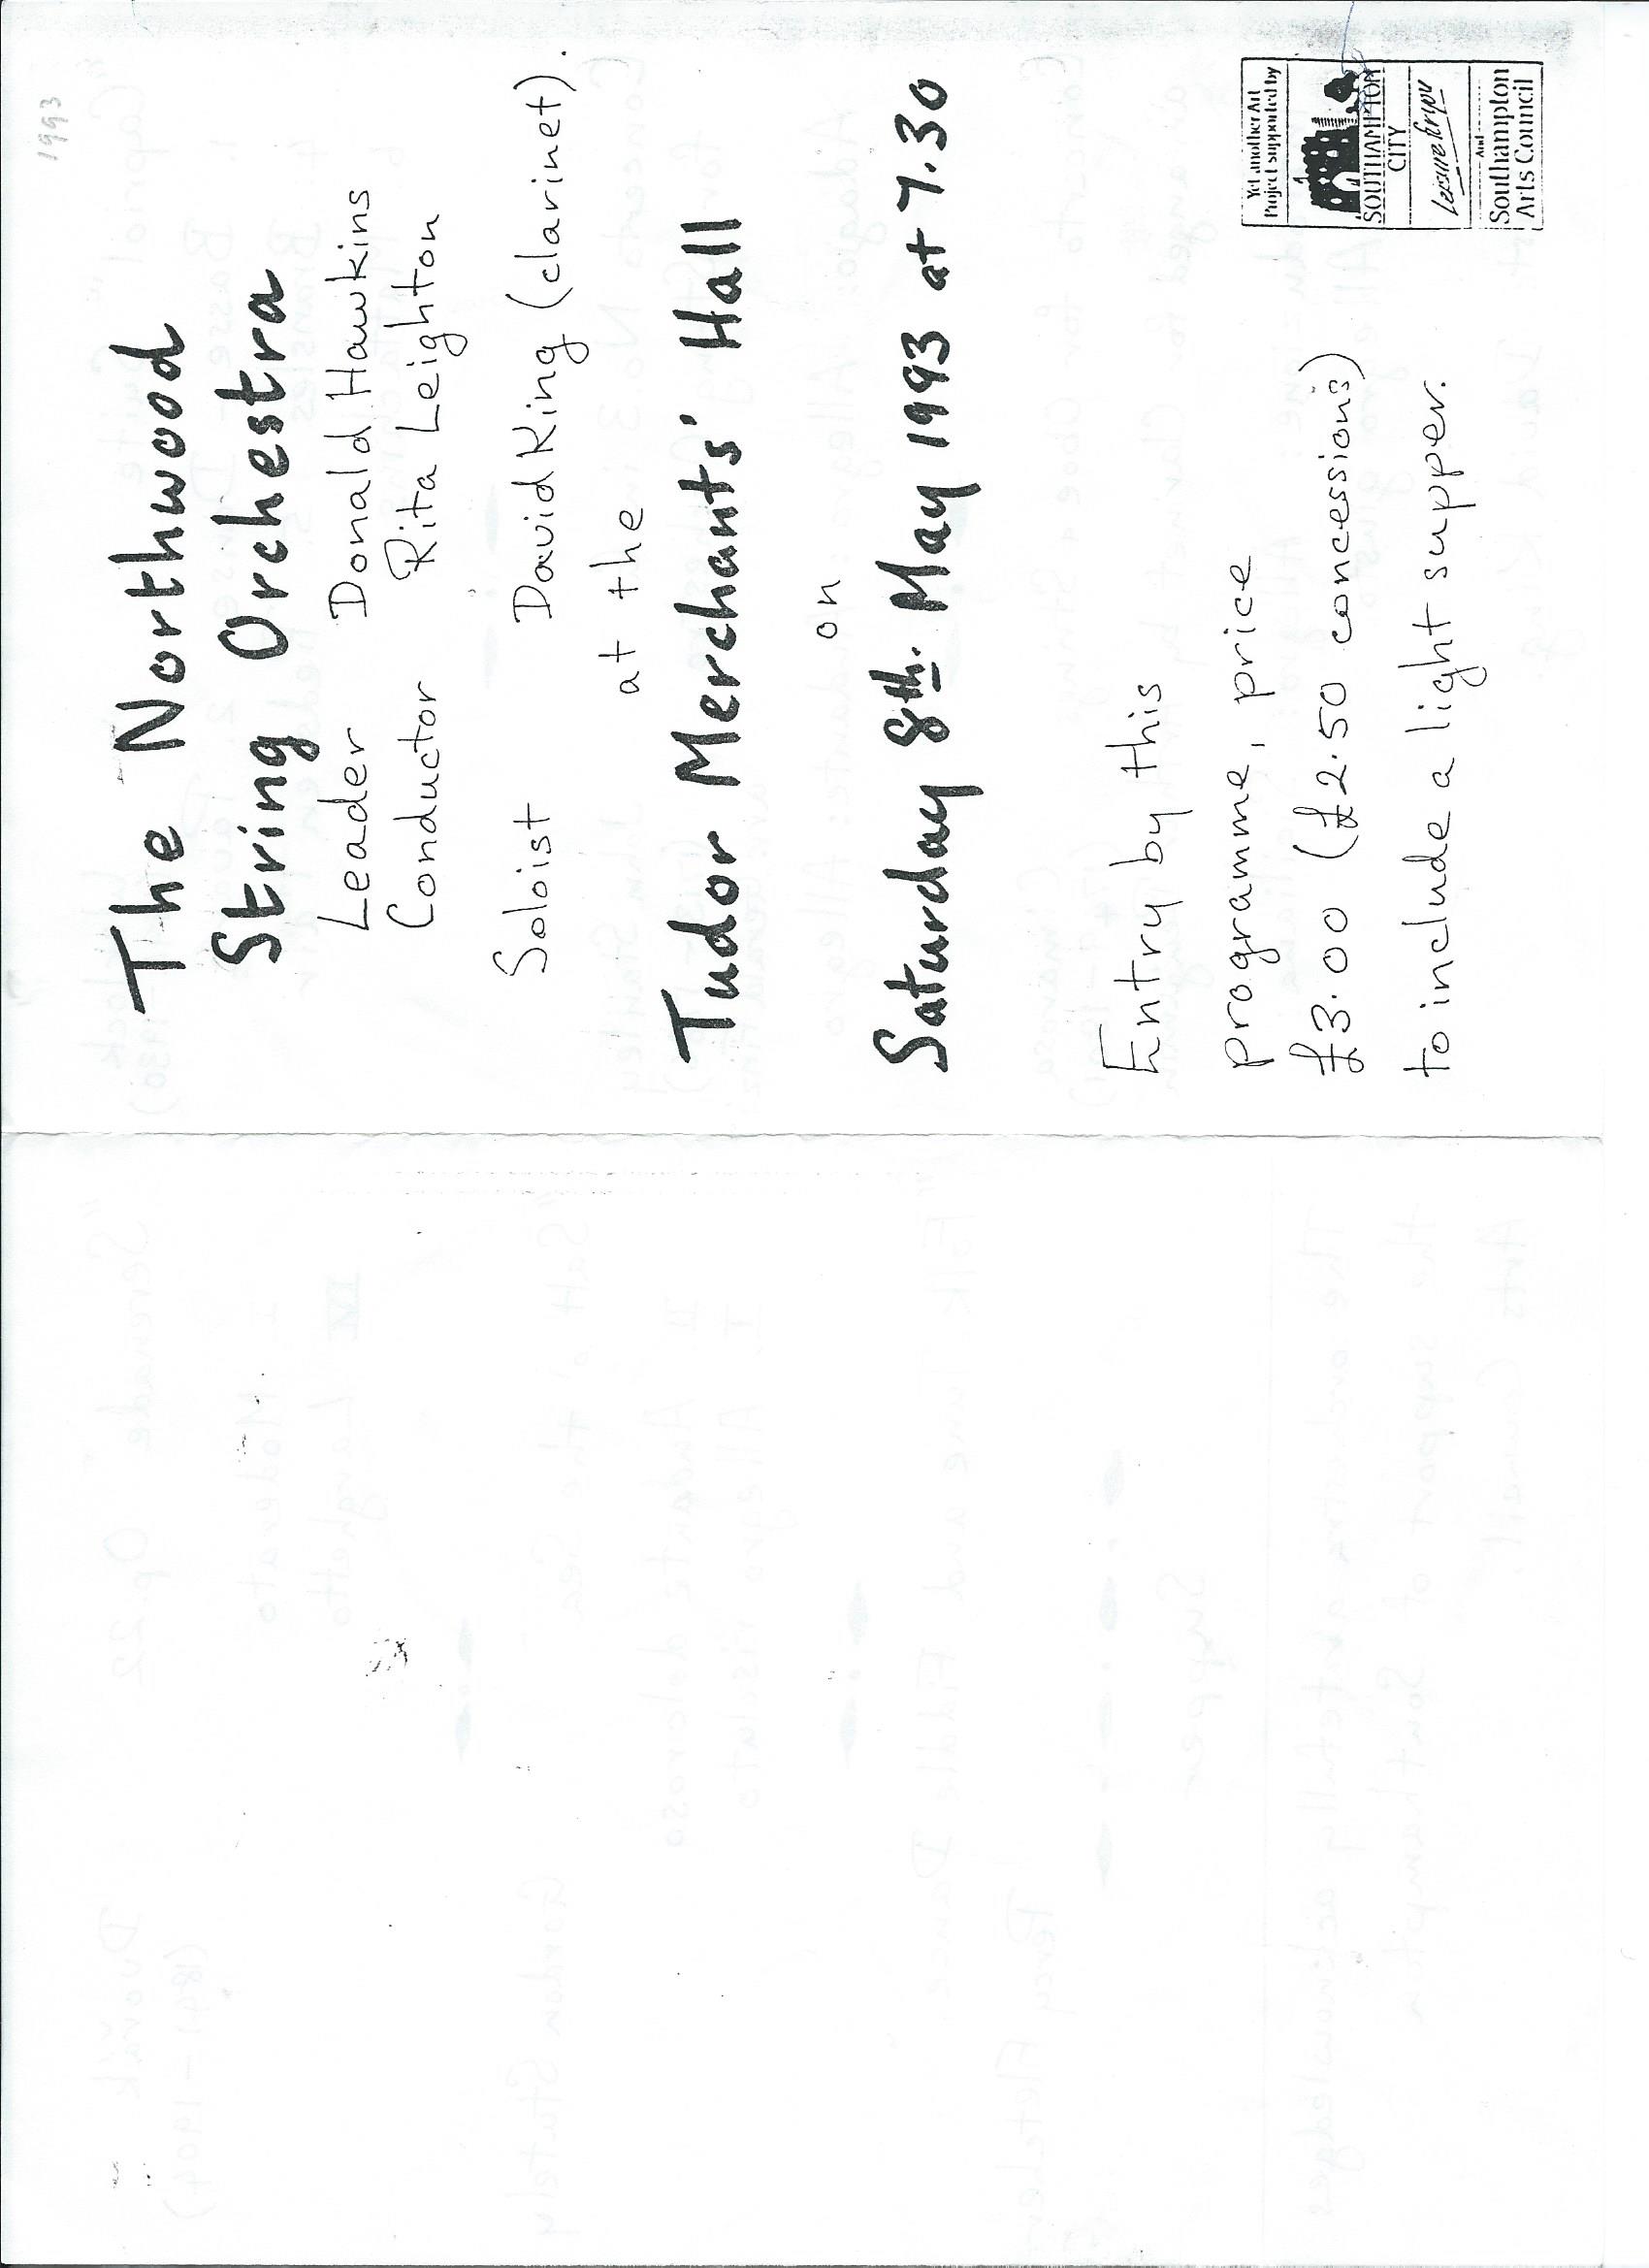 1993
The Northwood
String Orchestra
Leader Donald Hawkins
Conductor Rita Leighton
Soloist David King (clarinet).
at the
Tudor Merchants' Hall
on
Saturday 8th. May 1993 at 7.30
Entry by this
programme, price
£3.00 (£2.50 concessions)
to include a light supper.
Yet another Art
Project supported by
SOUTHAMPTON
CITY
And
Southampton
Arts Council